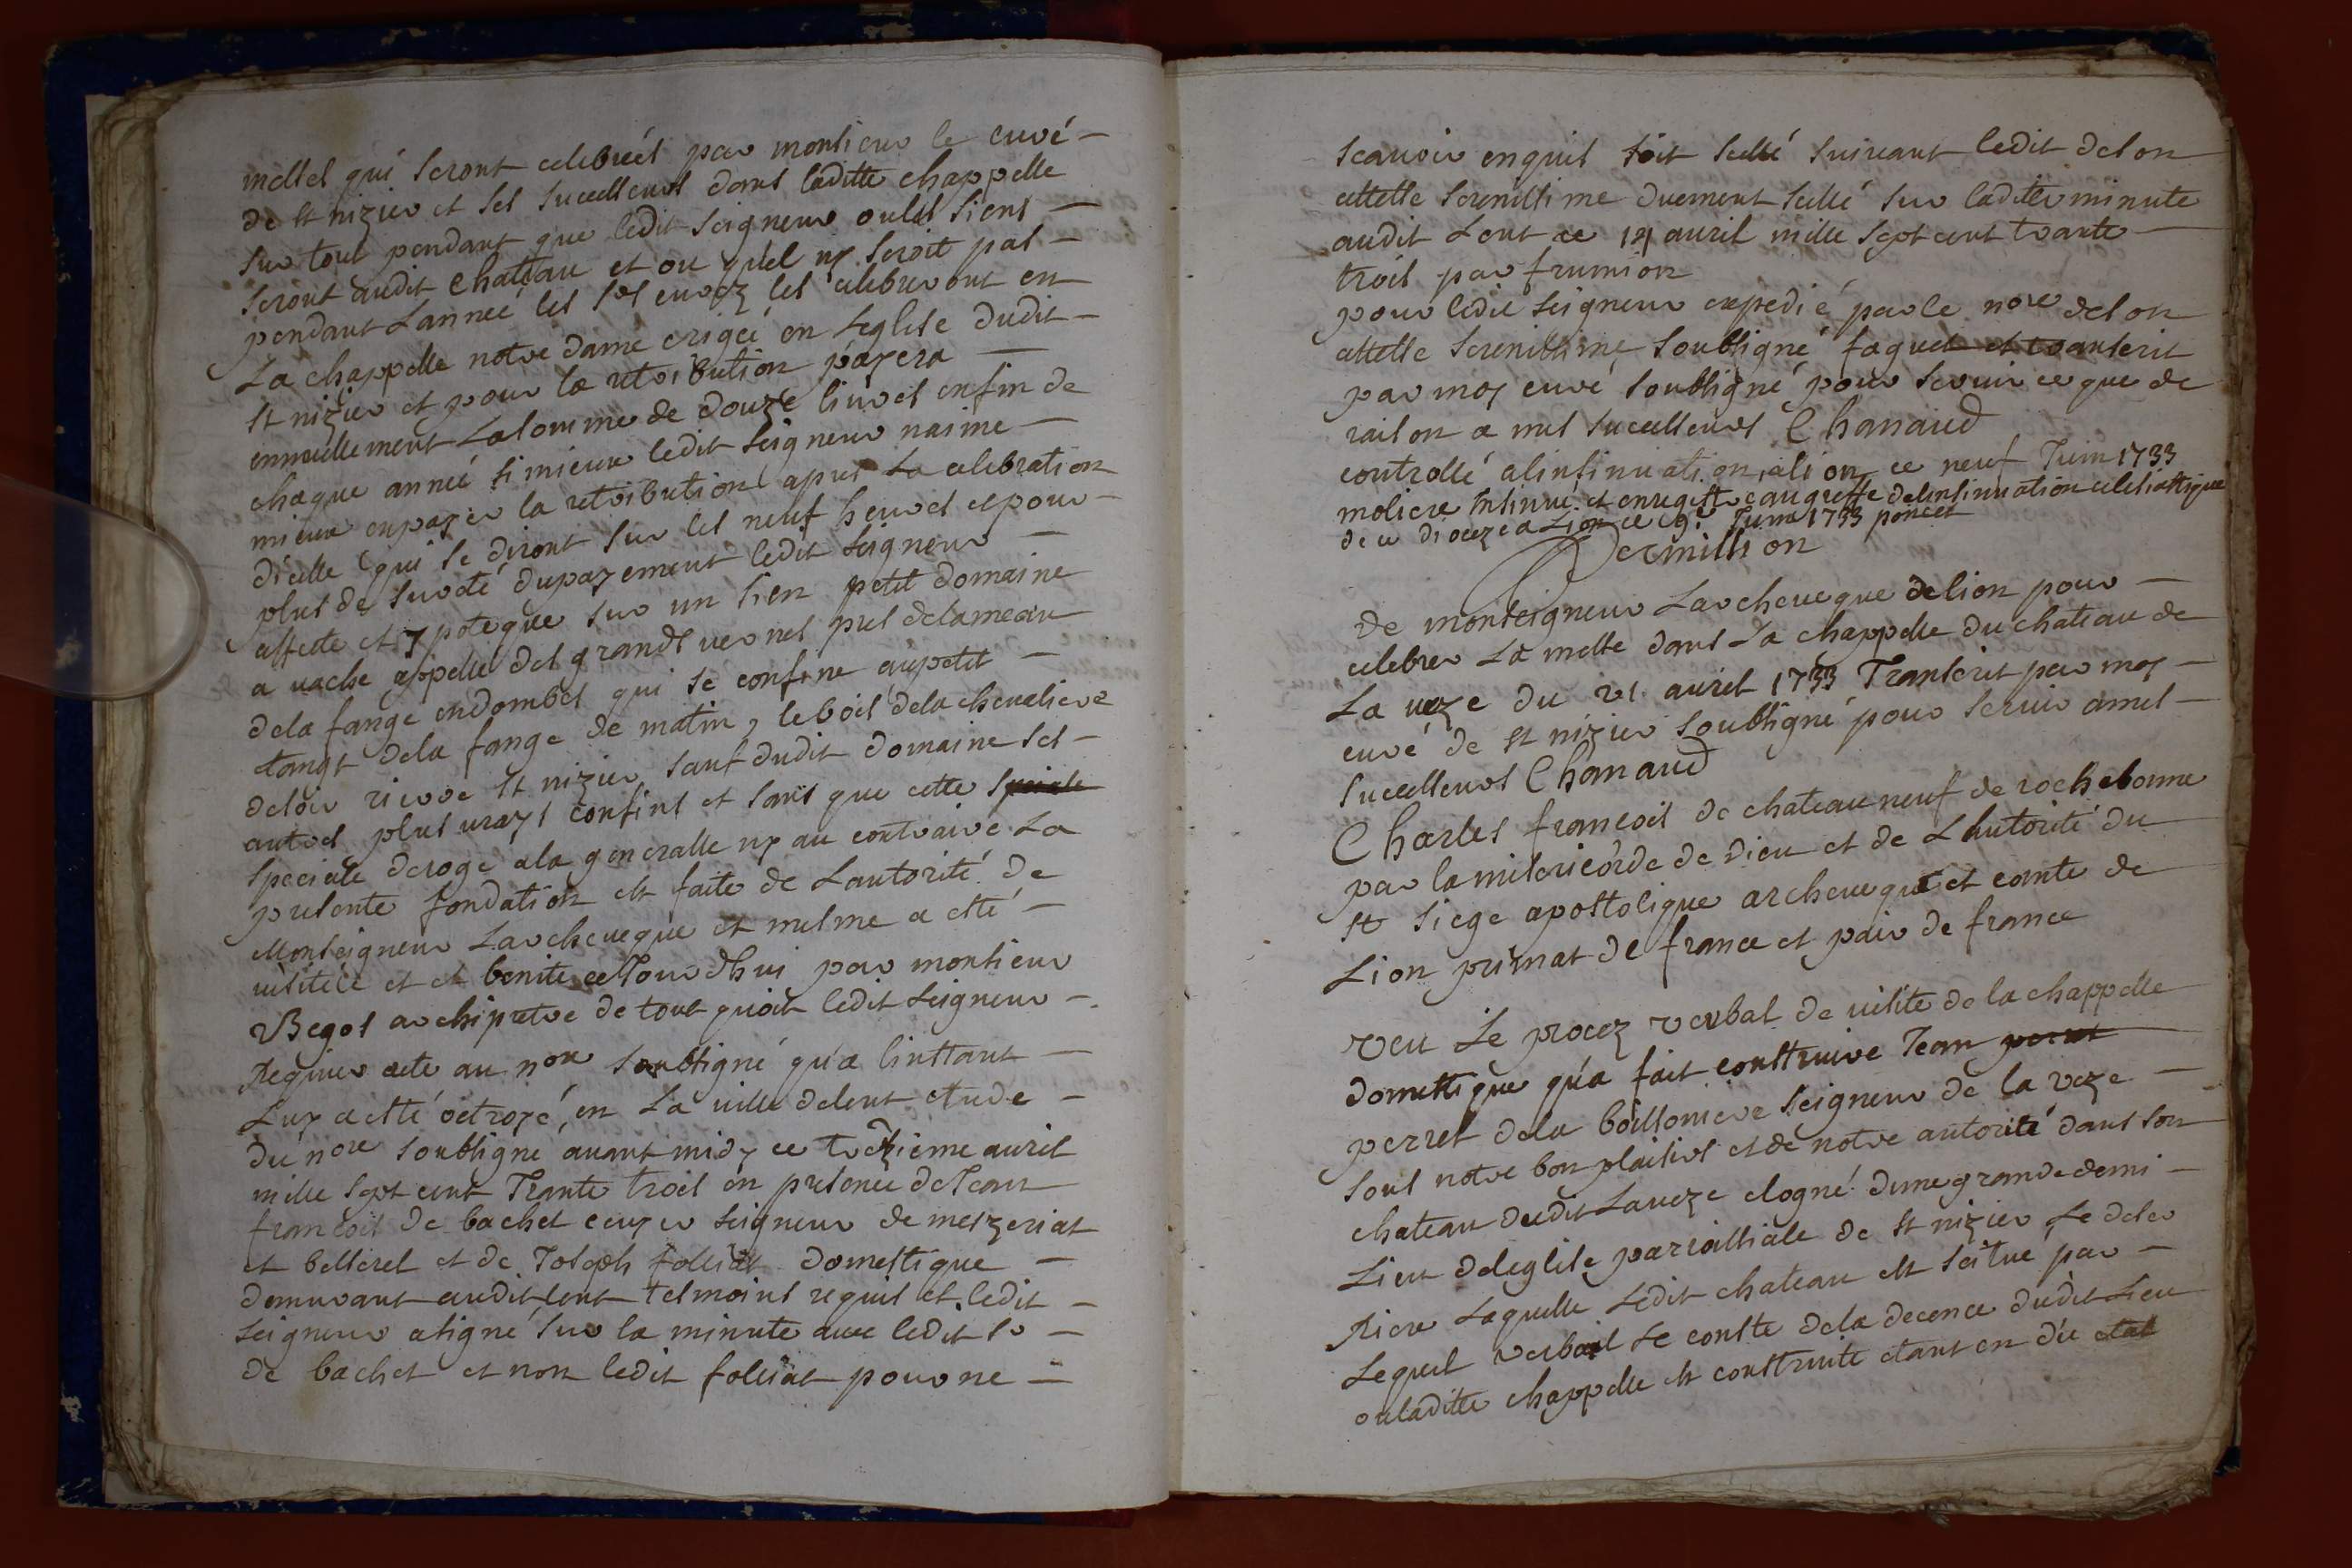 messes qui seront celebreés par monsieur le curé –
de st nizier et ses successeurs dans laditte chappelle
sur tout pendant que ledit seigneur oules siens –
seront audit chattau et ou qu'el ny seroit pas –
pendant Lanneé les srs curez les celebreront en
La chappelle notre dame erigeé en Leglise dudit –
st nizier et pour la retribution payera –
annuellement La somme de douze livres enfin de
chaque anneé si mieux ledit seigneur naime –
mieux enpayer la retribution apres La celebration
dicelle qui se diront sur les neuf heures et pour –
plus de sureté dupayement ledit seigneur –
affecte et ypoteque sur un sien petit domaine
a vache appelle des grands vernes pres delameau
dela fange endombes qui se confine aupetit –
etangt dela fange de matin, lebois dela chevaliere
desoir rierre st nizier sauf dudit domaine ses –
autres plus vrays confins et sans que cette speciale
speciale deroge ala generalle ny au contraire La
presente fondation est faite de Lautorité de
Monseigneur Larcheveque et mesme a esté –
visiteé et et benite cejourdhui par monsieur
Begos archipretre de tout quoit ledit seigneur –
Requier acte au nore soubsigné qu'a linstant –
Luy a esté octroyé, en La ville delent etude –
du nore soubsigné avant midy ce treiziéme avril
mille sept cent Trante trois en presence deJean
francois de bachet ecuyer seigneur de meyzeriat
et belserel et de Joseph folliat domestique –
demeurant audit lent tesmoins requis et ledit –
seigneur asigné sur la minute avec ledit sr –
de bachet et non ledit folliat pour ne –
scavoir enquis soit scellé suivant ledit deson
altesse serenissime duement scellé sur laditte minute
audit Lent ce 14 avril mille sept cent trante –
trois par frumion
pour ledit seigneur expedié par le nore deson
altesse serenissime soubsigné faguet et transcrit
par moy curé soubsigné pour servir ce que de
raison a mes successeurs Chanaud
controllé alinsinuation, alion ce neuf Juin 1733
moliere insinué et enregistre augreffe delinsinuation eclesiastique
de ce dioceze a Lion ce 9e Juin 1733 poncet
Permission
De monseigneur Larcheveque delion pour –
celebrer La messe dans La chappelle du chateau de
La veze du 21 avril 1733 Transcrit par moy –
curé de st nizier soubsigné pour servir ames –
successeurs Chanaud
Charles francois de chateauneuf de rochebonne
par lamisericorde de Dieu et de Lautorité du
st siege apostolique archeveque et comte de
Lion primat de france et pair de france
veu Le procez verbal de visite de la chappelle
domestique qu'a fait construire Jean perret
perret dela boissoniere seigneur de la veze –
sous notre bon plaisirs et de notre autorité dans son
chateau dudit Laveze elogné dune grande demi –
Lieu deleglise paroissiale de st nizier Le deser
Riere Laquelle Ledit chateau est scitué par –
Lequel verbail se conste dela decence dudit Lieu
ouladitte chappelle est construite etant en du etat